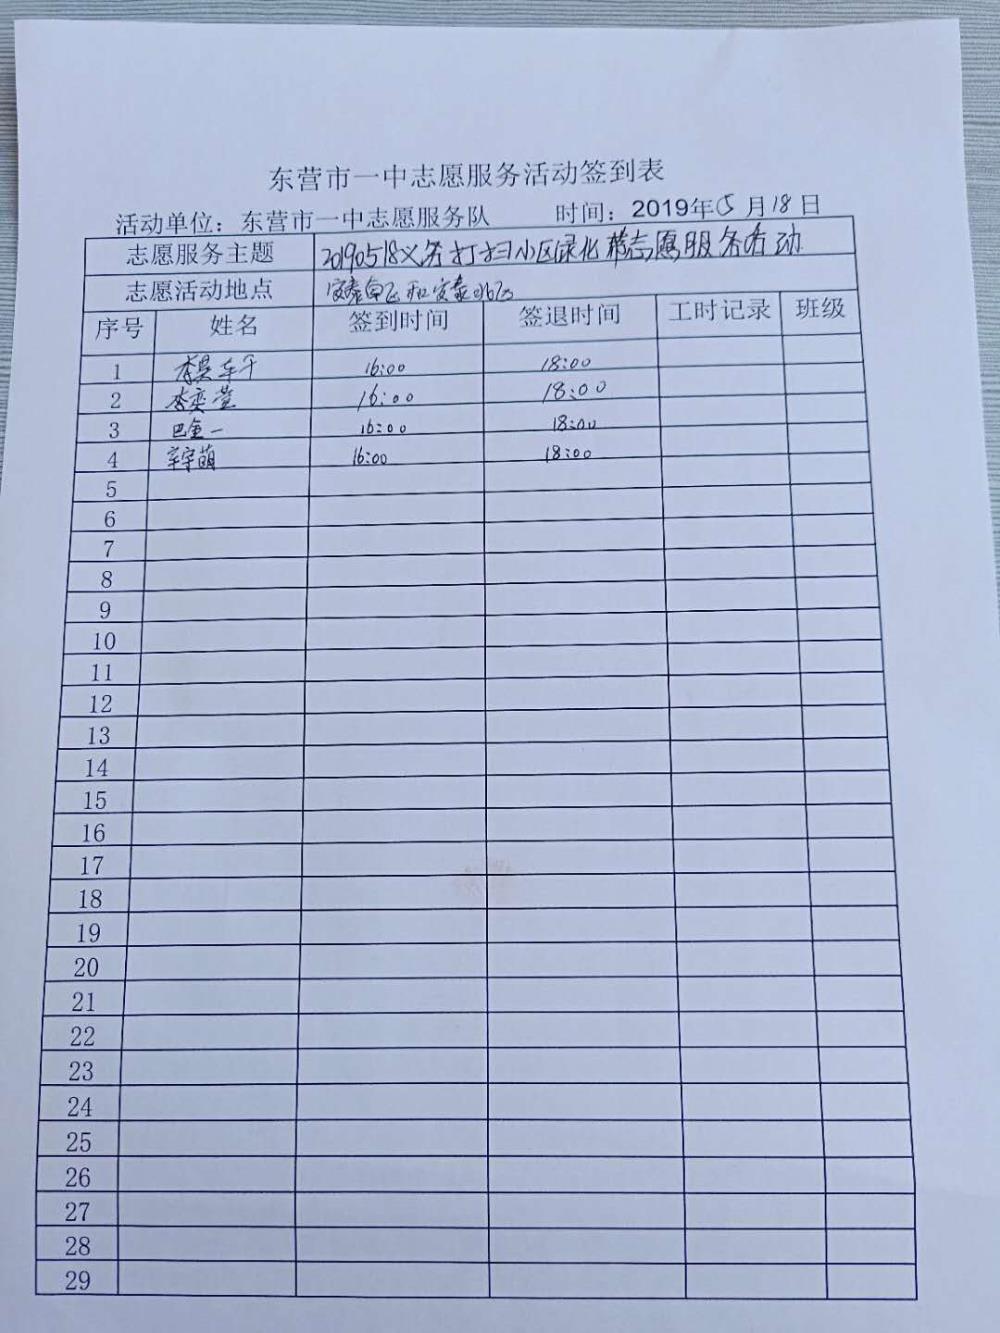 东营市一中志愿服务活动签到表
活动单位：东营市一中志愿服务队 时间：2019年05月18日
志愿服务主题 20190518义务打扫小区绿化带志愿服务活动
志愿活动地点 安泰南区和安泰北区
序号 姓名 签到时间 签退时间 工时记录 班级
1 李昊 16:00 18:00
2 李奕萱 16:00 18:00
3 巴金一 16:00 18:00
4 辛宇萌 16:00 18:00
5
6
7
8
9
10
11
12
13
14
15
16
17
18
19
20
21
22
23
24
25
26
27
28
29